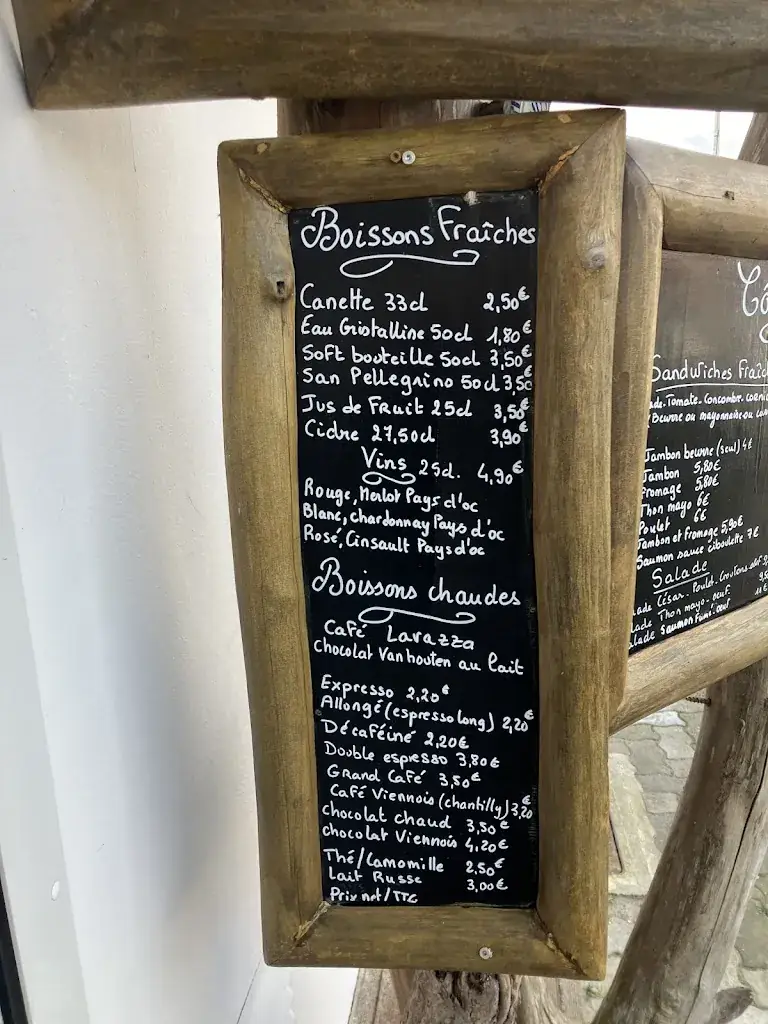 Boissons Fraîches
Canette 33cl 2,50€
Eau Cristalline 50cl 1,80€
Soft bouteille 50cl 3,50€
San Pellegrino 50cl 3,50
Jus de Fruit 25cl 3,50€
Cidre 27,50cl 3,90€
Vins 25cl. 4,90€
Rouge, Merlot Pays d'oc
Blanc, chardonnay Pays d'oc
Rosé, Cinsault Pays d'oc
Boissons chaudes
Café Lavazza
Chocolat Van houten au lait
Expresso 2,20€
Allongé (espresso long) 2,20€
Décaféiné 2,20€
Double espresso 3,80€
Grand Café 3,50€
Café Viennois (chantilly) 3,20
chocolat chaud 3,50€
chocolat Viennois 4,20€
Thé/Camomille 2,50€
Lait Russe 3,00€
Prix net/TTC
Sandwiches
Tomate. Concombre.
Beurre ou mayonnaise ou
Jambon beurre (seul) 4€
Jambon 5,80€
Fromage 5,80€
Thon mayo 6€
Poulet 6€
Jambon et fromage 5,90€
Saumon sauce ciboulette 7€
Salade
César. Poulet. Croutons.
Thon mayo. oeuf
Saumon fumé. oeuf